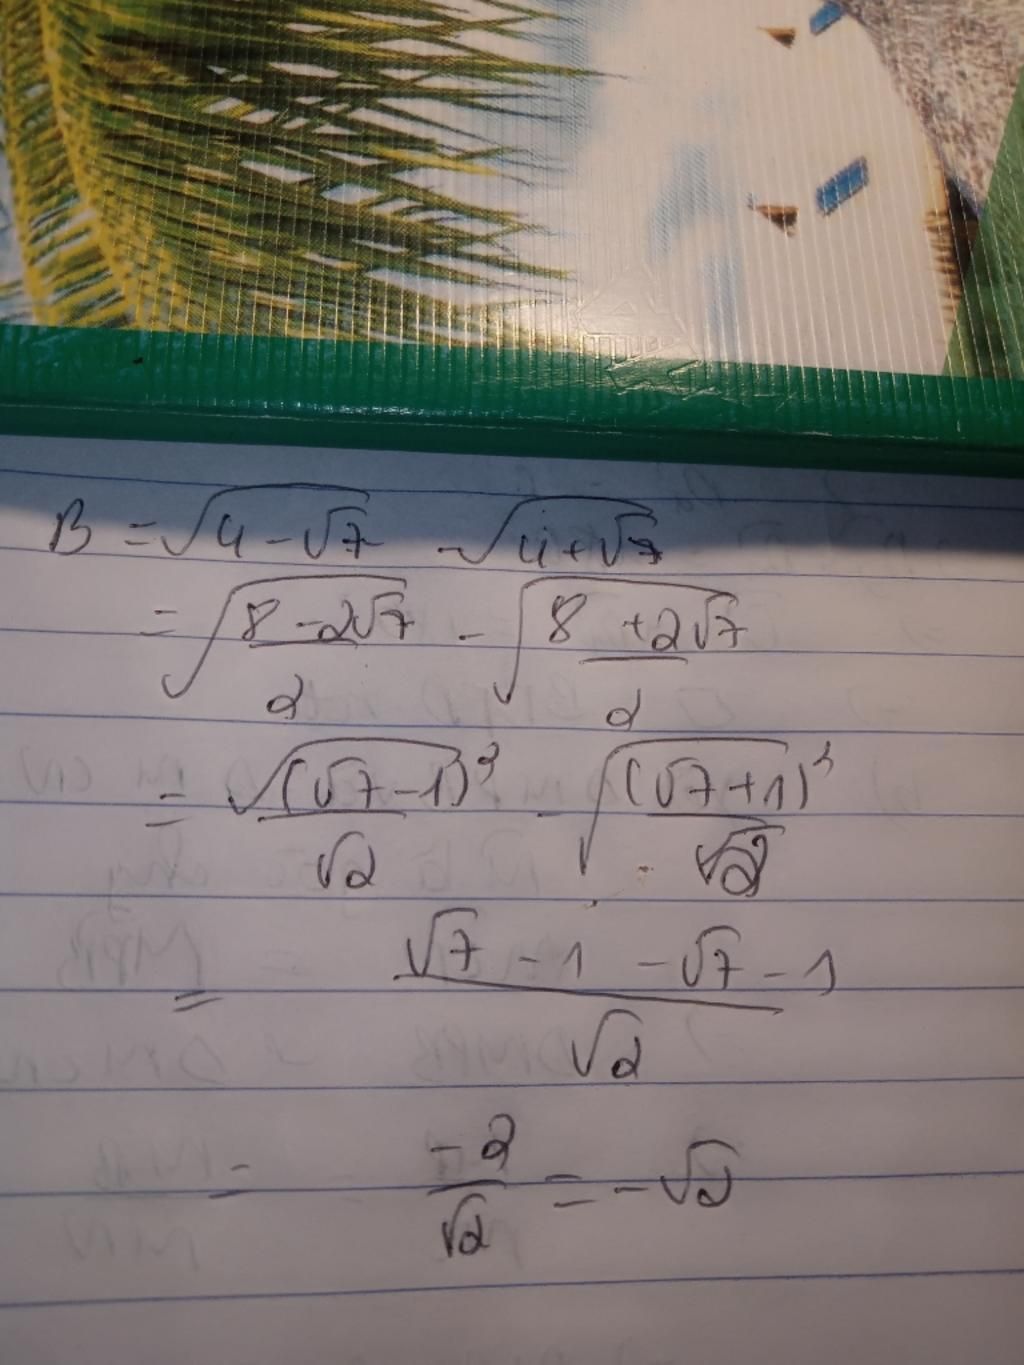 B = √(4 - √7) - √(4 + √7)
= √((8 - 2√7)/2) - √((8 + 2√7)/2)
= √((√7 - 1)²)/√2 - √((√7 + 1)²/√2)
= (√7 - 1 - √7 - 1)/√2
= -2/√2 = -√2